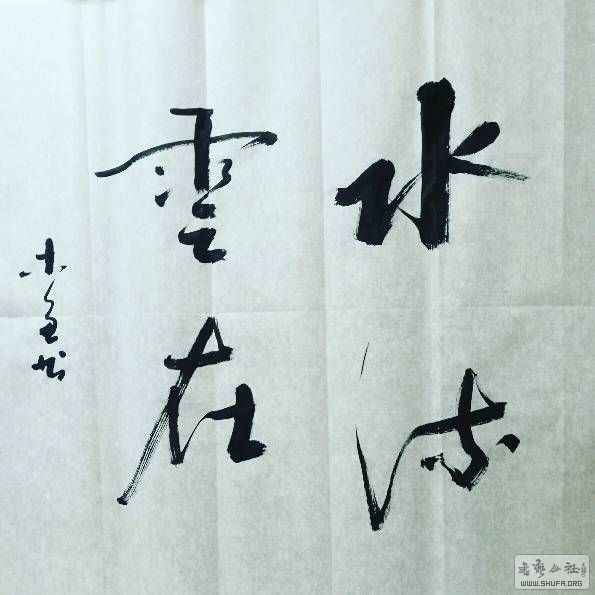 水流
雲在
书艺公社
WWW.SHUFA.ORG